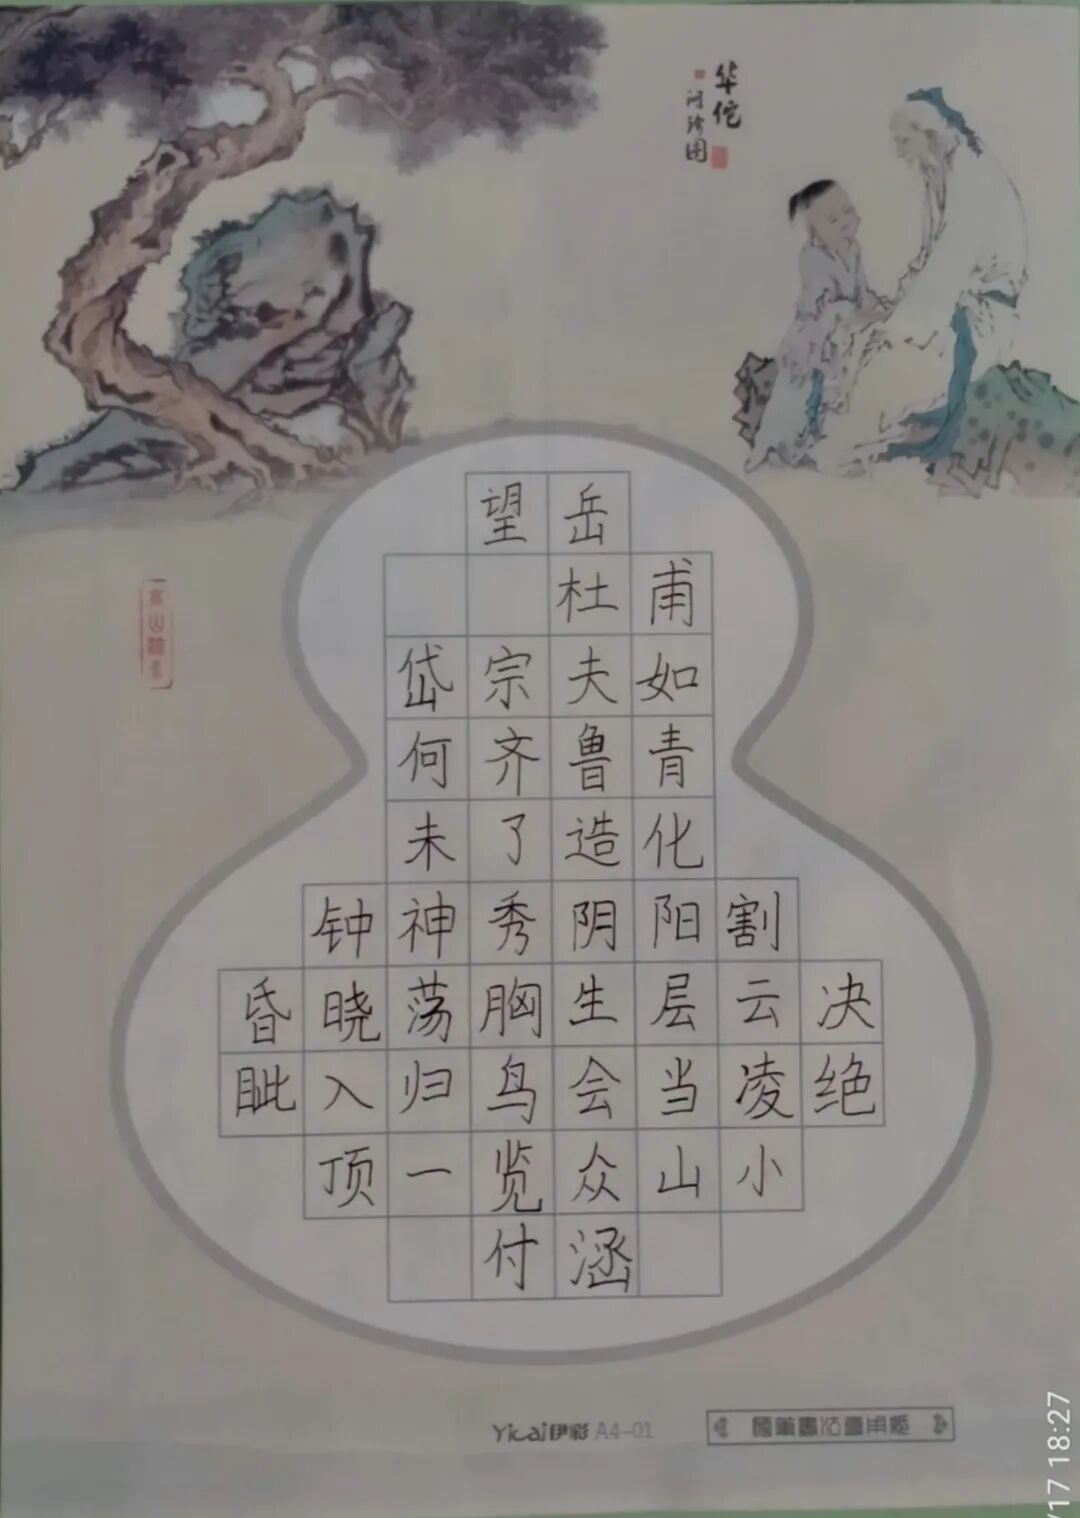 华佗
望岳
杜甫
岱宗夫如
何齐鲁青
未了造化
钟神秀阴阳割
昏晓荡胸生层云决
眦入归鸟会当凌绝
顶一览众山小
付涵
Yicai伊彩 A4-01
/17 18:27